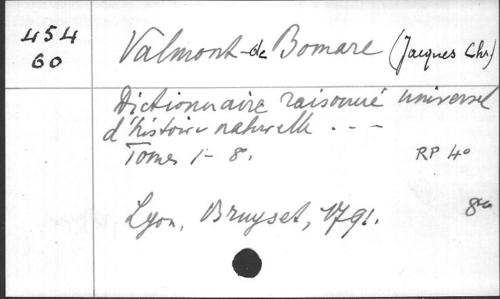 454
60
Valmont-de Bomare (Jacques Chr)
Dictionnaire raisonné universel
d'histoire naturelle . - -
Tomes 1 - 8.
RP 40
Lyon, Bruyset, 1791.
8vo